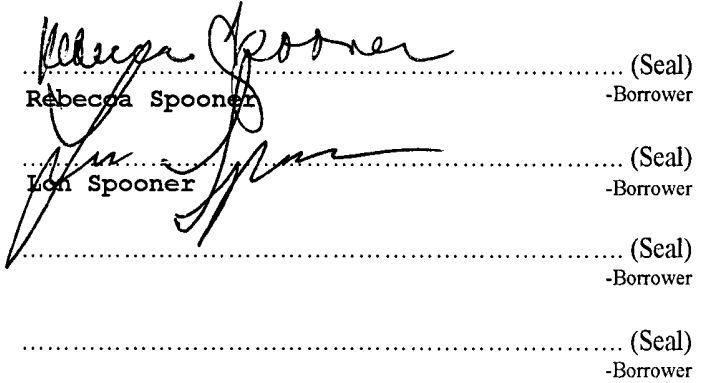 Rebecca Spooner
........................................................................ (Seal)
Rebecca Spooner -Borrower
Lon Spooner
........................................................................ (Seal)
Lon Spooner -Borrower
........................................................................ (Seal)
-Borrower
........................................................................ (Seal)
-Borrower